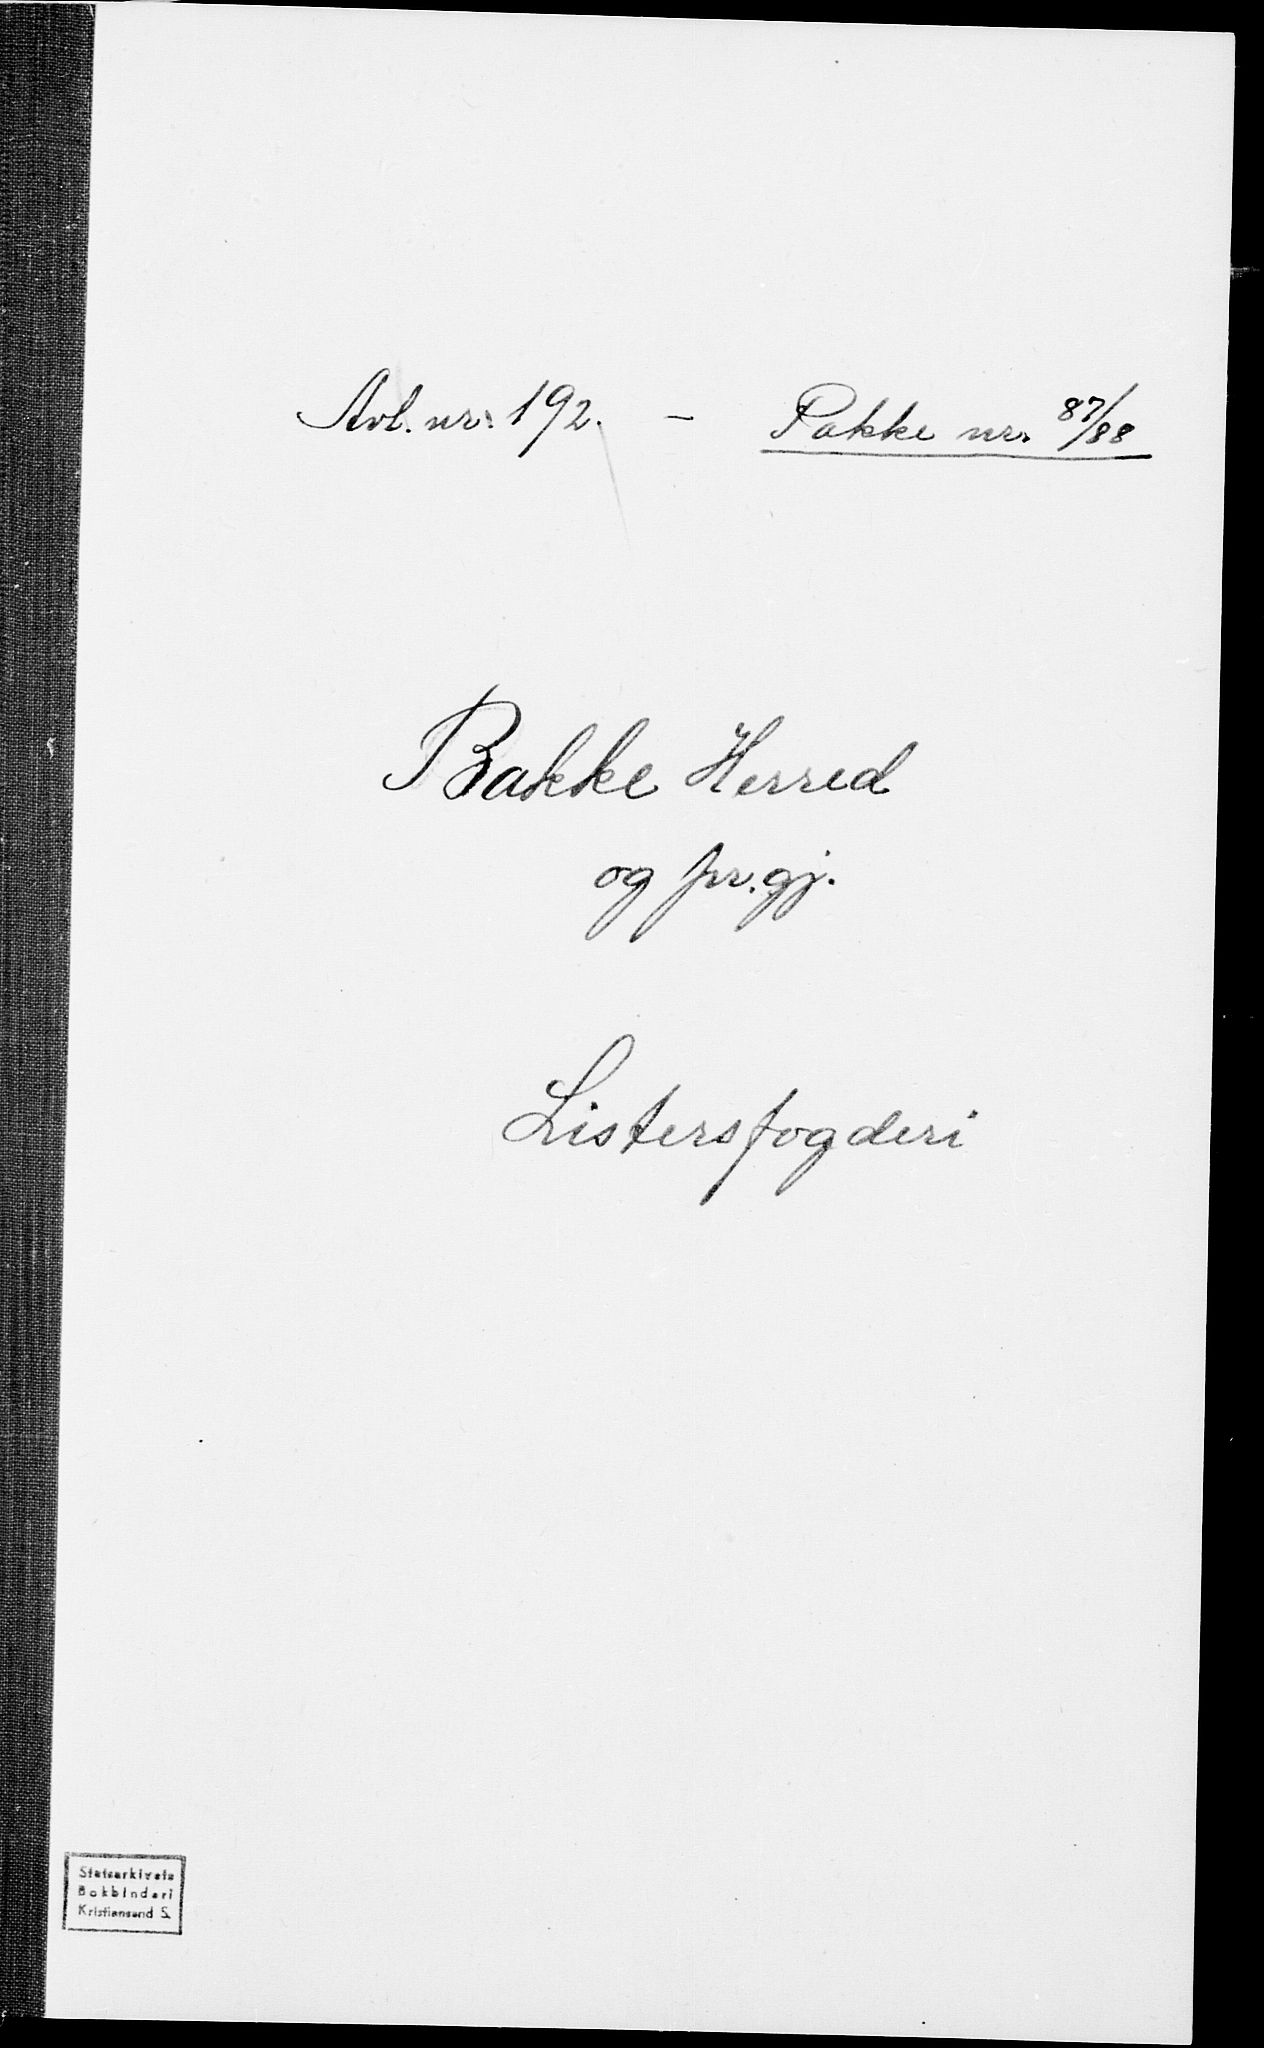 Avl. nr. 192. - Pakke nr. 87/88
Bakke Herred
og pr.gj.
Listersfogderi
Statsarkivets
Bokbinderi
Kristiansand S.